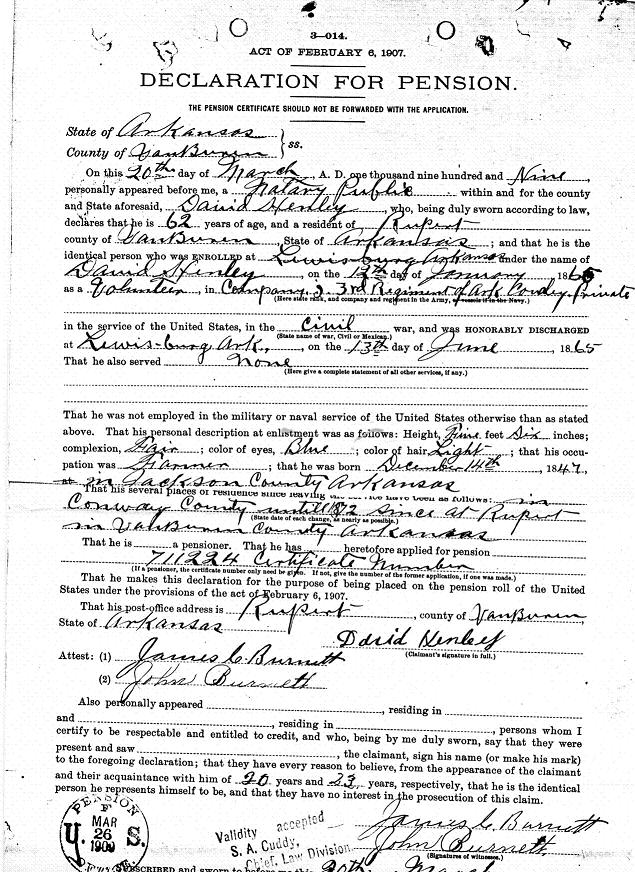 3—014.
ACT OF FEBRUARY 6, 1907.
DECLARATION FOR PENSION.
THE PENSION CERTIFICATE SHOULD NOT BE FORWARDED WITH THE APPLICATION.
State of Arkansas
County of VanBuren } ss.
On this 20th day of March, A. D. one thousand nine hundred and Nine
personally appeared before me, a Notary Public within and for the county
and State aforesaid, David Henley, who, being duly sworn according to law,
declares that he is 62 years of age, and a resident of Rupert
county of VanBuren, State of Arkansas; and that he is the
identical person who was ENROLLED at Lewisburg Arkansas under the name of
David Henley, on the 13th day of January, 186
as a Volunteer, in Company J. 3rd Regiment of Ark Private
(Here state rank, and company and regiment in the Army, or vessels if in the Navy.)
in the service of the United States, in the Civil war, and was HONORABLY DISCHARGED
(State name of war, Civil or Mexican.)
at Lewisburg Ark., on the 13th day of June, 1865
That he also served None
(Here give a complete statement of all other services, if any.)
That he was not employed in the military or naval service of the United States otherwise than as stated
above. That his personal description at enlistment was as follows: Height, Five feet Six inches;
complexion, Fair; color of eyes, Blue; color of hair Light; that his occu-
pation was Farmer; that he was born December 14th, 1847,
at in Jackson County Arkansas
That his several places of residence since leaving the service have been as follows: in
Conway County untill 1872 since at Rupert
(State date of each change, as nearly as possible.)
in VanBuren County Arkansas
That he is a pensioner. That he has heretofore applied for pension
711224 Certificate Number
(If a pensioner, the certificate number only need be given. If not, give the number of the former application, if one was made.)
That he makes this declaration for the purpose of being placed on the pension roll of the United
States under the provisions of the act of February 6, 1907.
That his post-office address is Rupert, county of VanBuren,
State of Arkansas
David Henley
(Claimant's signature in full.)
Attest: (1) James C Burnett
(2) John Burnett
Also personally appeared , residing in
and , residing in , persons whom I
certify to be respectable and entitled to credit, and who, being by me duly sworn, say that they were
present and saw , the claimant, sign his name (or make his mark)
to the foregoing declaration; that they have every reason to believe, from the appearance of the claimant
and their acquaintance with him of 20 years and 23 years, respectively, that he is the identical
person he represents himself to be, and that they have no interest in the prosecution of this claim.
PENSION
MAR
26
1909
U. S.
Validity accepted
S. A. Cuddy,
Chief, Law Division
James C Burnett
John Burnett
(Signatures of witnesses.)
SUBSCRIBED and sworn to before me this 20th March